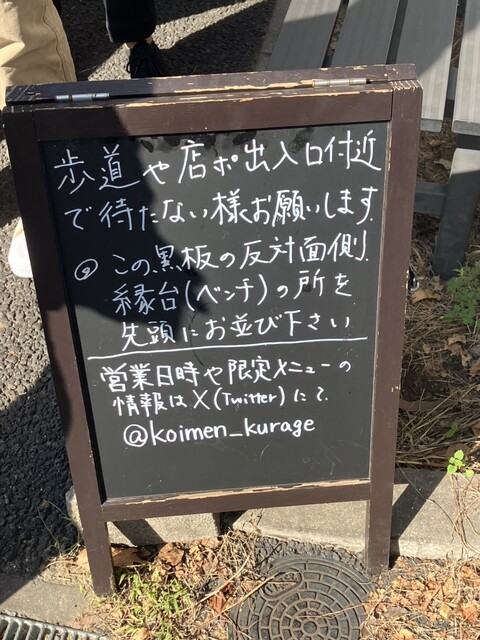 歩道や店ポ出入口付近
で待たない様お願いします
◎ この黒板の反対面側
縁台(ベンチ)の所を
先頭にお並び下さい
営業日時や限定メニューの
情報はX(Twitter)にて
@koimen_kurage